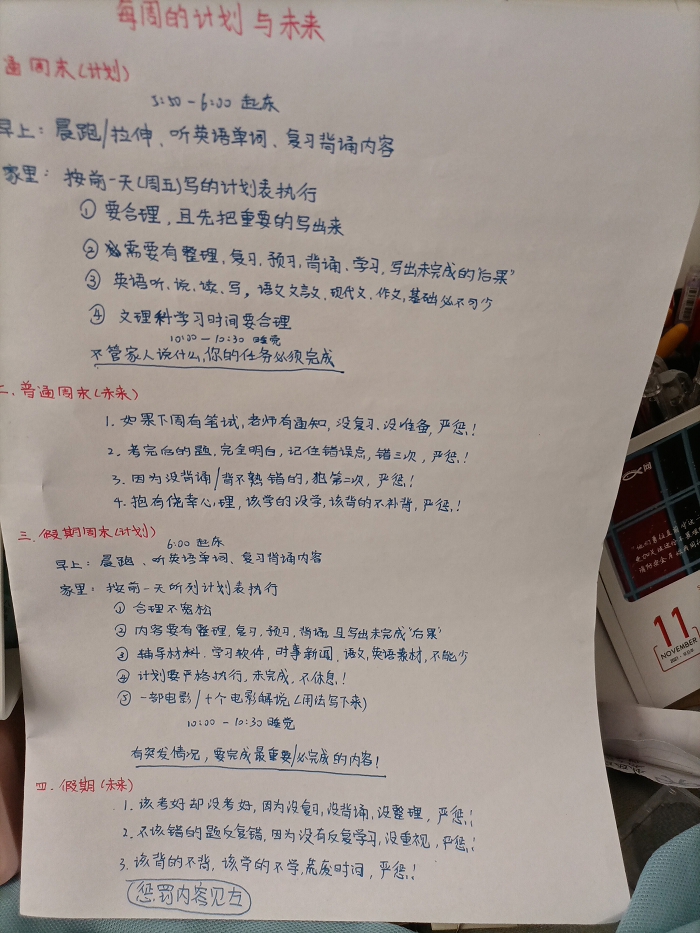 每周的计划与未来
通周末(计划)
5:50-6:00 起床
早上: 晨跑/拉伸、听英语单词、复习背诵内容
家里: 按前一天(周五)写的计划表执行
① 要合理,且先把重要的写出来
② 需要有整理,复习,预习,背诵、学习,写出未完成的"后果"
③ 英语听、说、读、写,语文文言文,现代文,作文,基础必不可少
④ 文理科学习时间要合理
10:00-10:30 睡觉
不管家人说什么,你的任务必须完成
二.普通周末(未来)
1. 如果下周有笔试,老师有通知,没复习,没准备,严惩!
2. 考完后的题,完全明白,记住错误点,错三次,严惩!
3. 因为没背诵/背不熟错的,犯第二次,严惩!
4. 抱有侥幸心理,该学的没学,该背的不补背,严惩!
三.假期周末(计划)
6:00 起床
早上: 晨跑、听英语单词、复习背诵内容
家里: 按前一天所列计划表执行
① 合理不宽松
② 内容要有整理.复习.预习.背诵,且写出未完成"后果"
③ 辅导材料.学习软件,时事新闻,语文,英语素材,不能少
④ 计划要严格执行,未完成,不休息!
⑤ 一部电影/十个电影解说(用法写下来)
10:00-10:30 睡觉
有突发情况,要完成最重要/必完成的内容!
四.假期(未来)
1. 该考好却没考好,因为没复习,没背诵,没整理,严惩!
2. 不该错的题反复错,因为没有反复学习,没重视,严惩!
3. 该背的不背,该学的不学,荒废时间,严惩!
惩罚内容见左
11
NOVEMBER